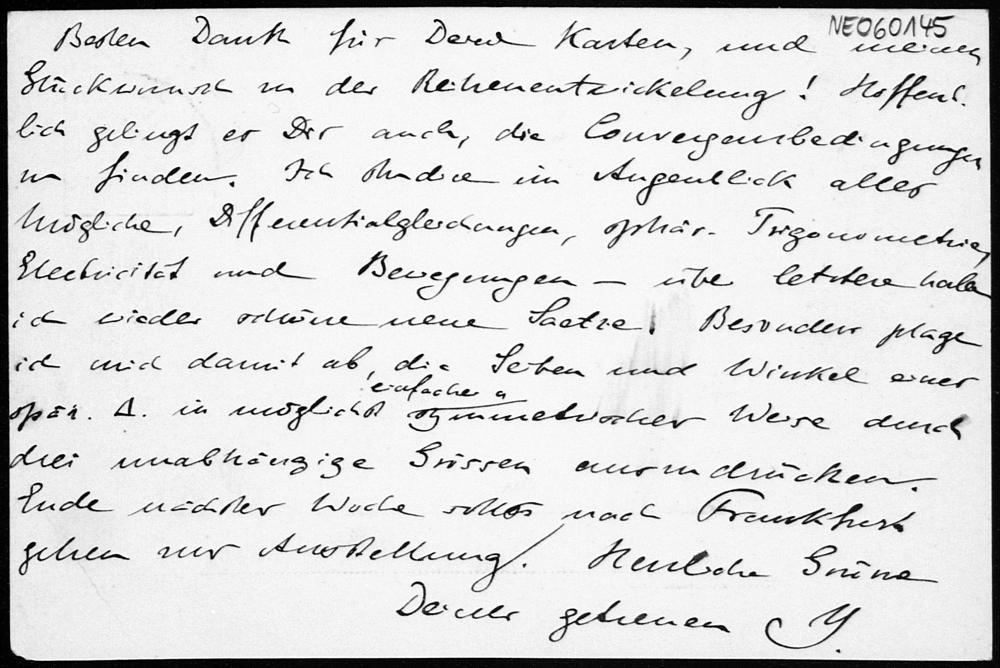 NE060145
Besten Dank für Deine Karten, und meinen
Glückwunsch zu der Reihenentwickelung! Hoffent-
lich gelingt es Dir auch, die Convergenzbedingungen
zu finden. Ich studire im Augenblick alles
Mögliche, Differentialgleichungen, sphär. Trigonometrie,
Electricität und Bewegungen – über letztere habe
ich wieder schöne neue Saetze. Besonders plage
ich mich damit ab, die Seiten und Winkel eines
sphär. Δ. in möglichst symmetrischer Weise durch
einfacher u
drei unabhängige Grössen auszudrücken.
Ende nächster Woche solls nach Frankfurt
gehen zur Ausstellung! Herzliche Grüsse
Deines getreuen